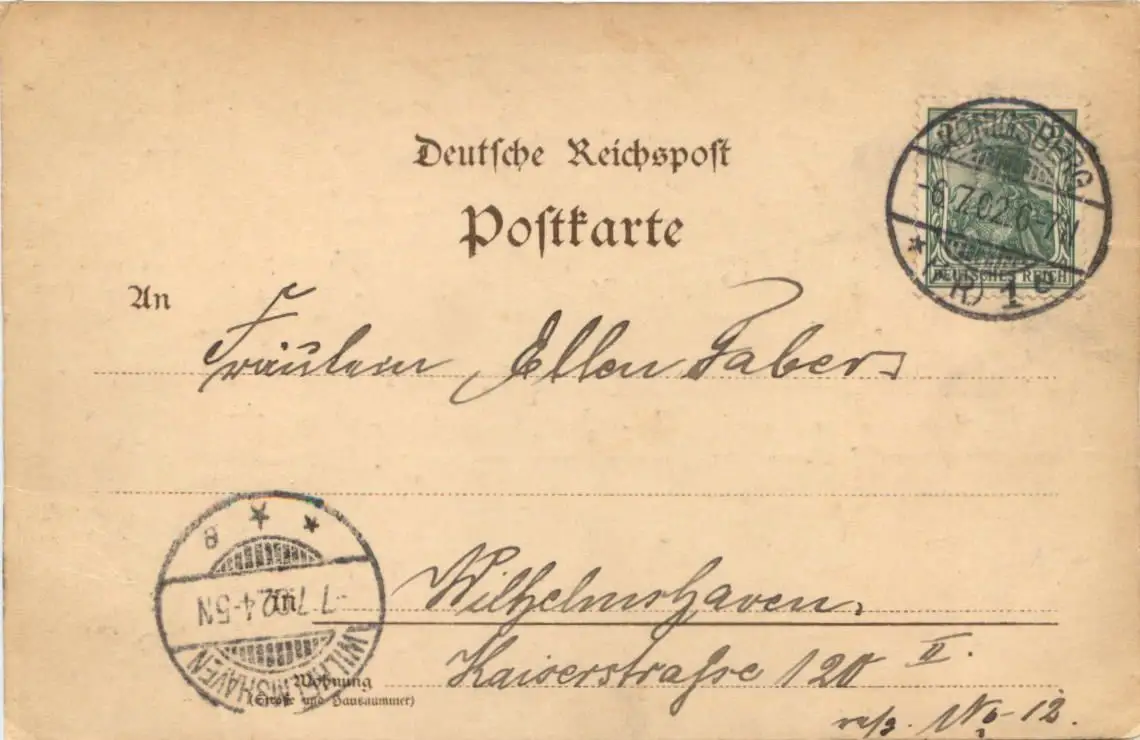 Deutsche Reichspost
Postkarte
KÖNIGSBERG
-6.7.02.6-7N
* (PR) 1 e
DEUTSCHES REICH
An
Fräulein Ellen Fabers
* * a
-7.7.02.4-5N
WILHELMSHAVEN
in
Wilhelmshaven.
Kaiserstraße 120 II.
Wohnung
(Straße und Hausnummer)
No 12.